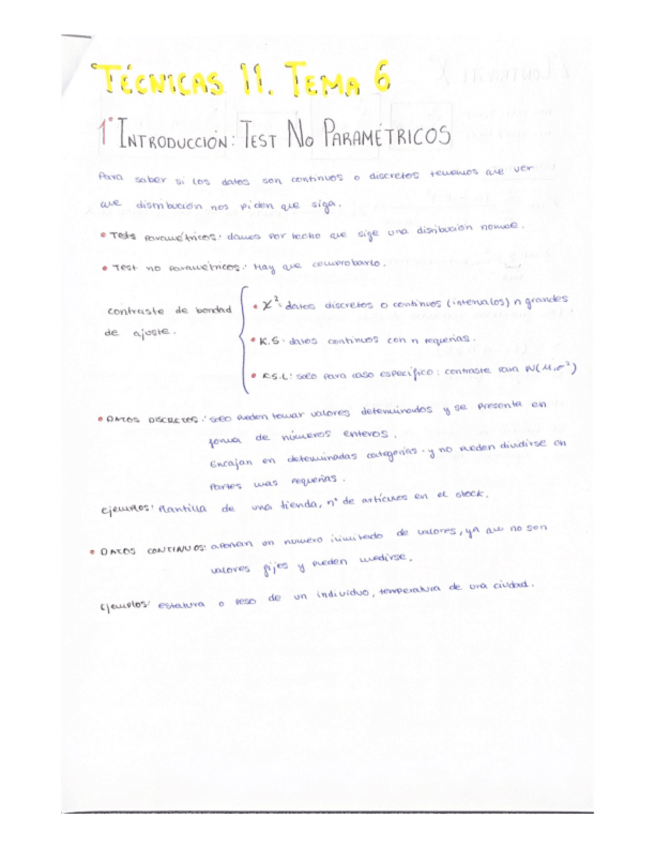 TÉCNICAS II. TEMA 6
1º INTRODUCCIÓN: TEST NO PARAMÉTRICOS
Para saber si los datos son continuos o discretos tenemos que ver
que distribución nos piden que siga.
• Tests paramétricos: damos por hecho que sige una distribución normal.
• Test no paramétricos: Hay que comprobarlo.
contraste de bondad
de ajuste.
• χ²: datos discretos o continuos (intervalos) n grandes
• K.S: datos continuos con n pequeñas.
• K.S.L: solo para caso específico: contraste para N(μ,σ²)
• DATOS DISCRETOS: solo pueden tomar valores determinados y se presenta en
forma de números enteros.
Encajan en determinadas categorías y no pueden dividirse en
partes mas pequeñas.
Ejemplos: Plantilla de una tienda, nº de artículos en el stock.
• DATOS CONTINUOS: aportan un numero ilimitado de valores, ya que no son
valores fijos y pueden medirse.
Ejemplos: estatura o peso de un individuo, temperatura de una ciudad.